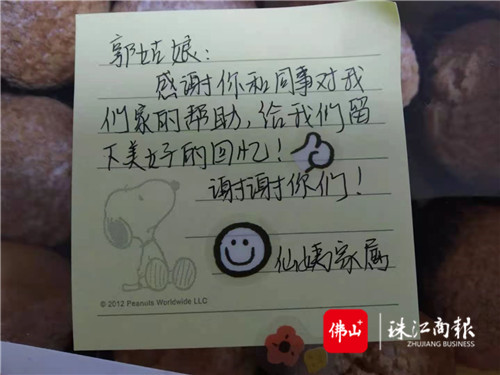 郭姑娘：
感谢你和同事对我
们家的帮助，给我们留
下美好的回忆！
谢谢你们！
仙姨家属
© 2012 Peanuts Worldwide LLC
佛山+
珠江商報
ZHUJIANG BUSINESS